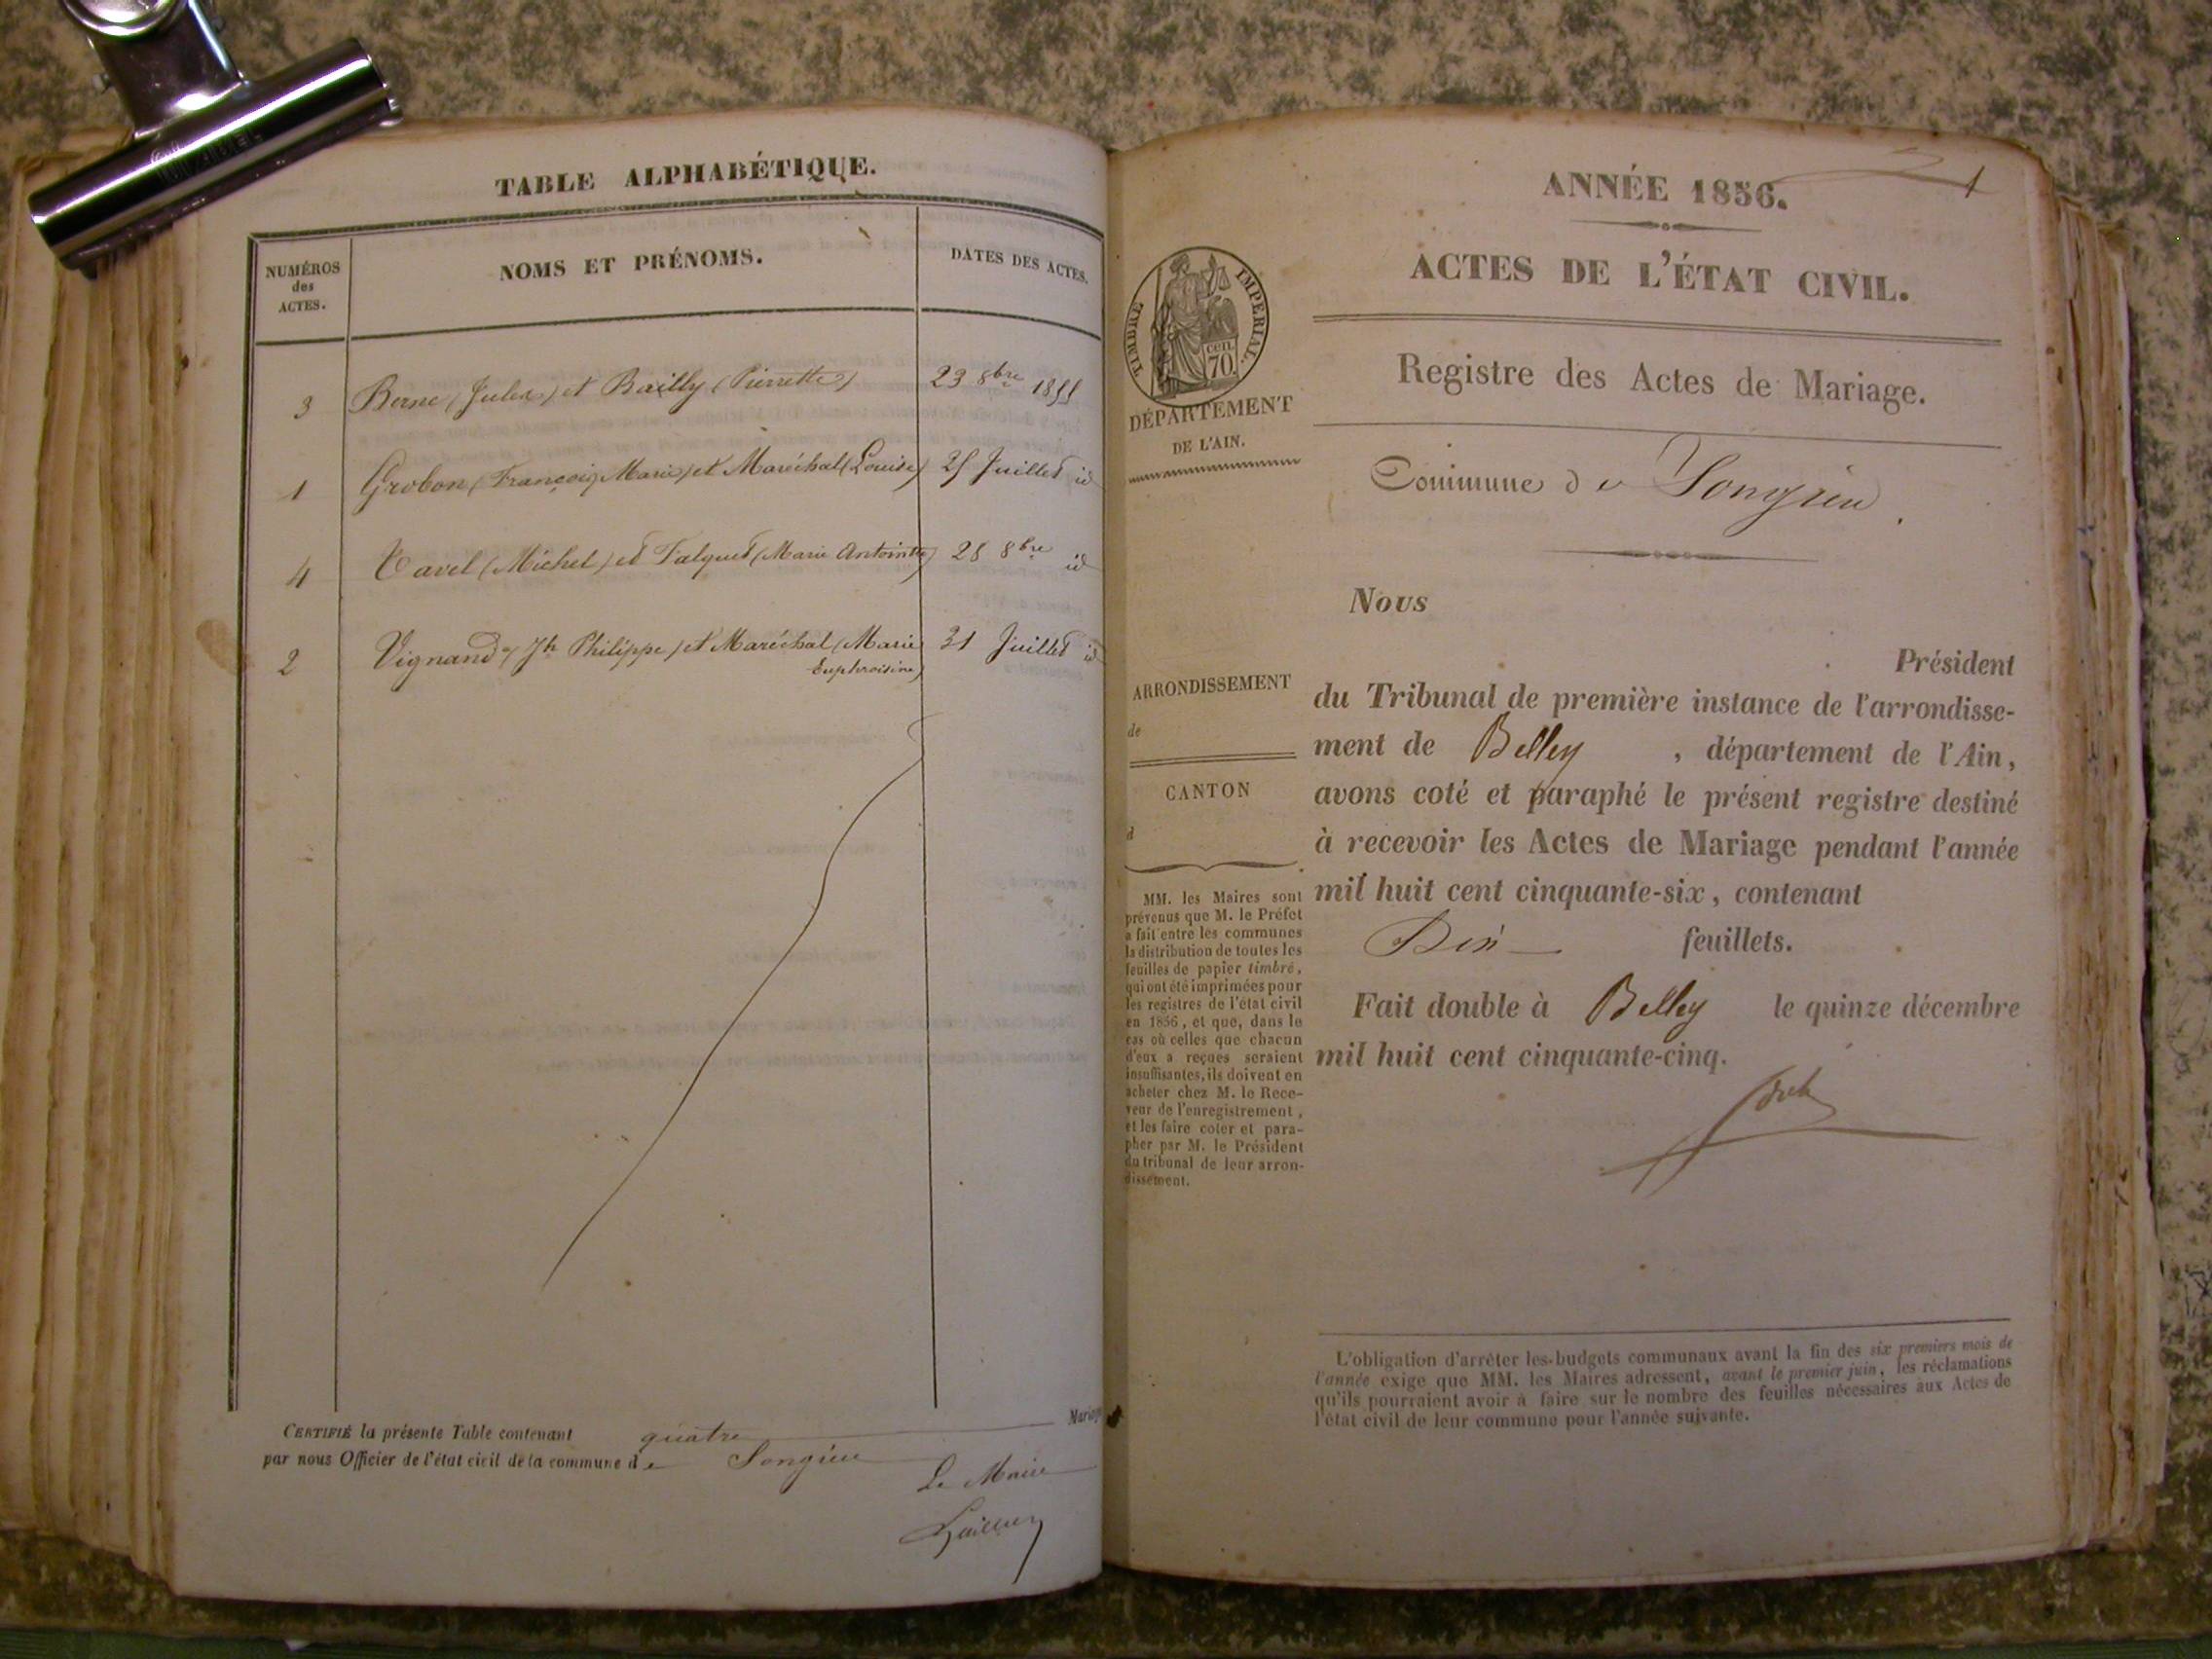 TABLE ALPHABÉTIQUE.
NUMÉROS
des
ACTES.
NOMS ET PRÉNOMS.
DATES DES ACTES.
3 Berne (Jules) et Bailly (Pierrette) 23 8bre 1855
1 Grobon (François Marie) et Maréchal (Louise) 25 Juillet id
4 Tavel (Michel) et Falquet (Marie Antointte) 28 8bre id
2 Vignand (Jh Philippe) et Maréchal (Marie 31 Juillet id
Euphroisine)
CERTIFIÉ la présente Table contenant quatre Mariage
par nous Officier de l'état civil de la commune de Songieu
Le Maire
ANNÉE 1856.
1
ACTES DE L'ÉTAT CIVIL.
TIMBRE IMPERIAL.
cen.
70.
DÉPARTEMENT
DE L'AIN.
Registre des Actes de Mariage.
Commune de Songieu.
Nous
Président
du Tribunal de première instance de l'arrondisse-
ment de Belley , département de l'Ain,
avons coté et paraphé le présent registre destiné
à recevoir les Actes de Mariage pendant l'année
mil huit cent cinquante-six, contenant
feuillets.
Fait double à Belley le quinze décembre
mil huit cent cinquante-cinq.
ARRONDISSEMENT
de
CANTON
d
MM. les Maires sont
prévenus que M. le Préfet
a fait entre les communes
la distribution de toutes les
feuilles de papier timbré,
qui ont été imprimées pour
les registres de l'état civil
en 1856, et que, dans le
cas où celles que chacun
d'eux a reçues seraient
insuffisantes, ils doivent en
acheter chez M. le Rece-
veur de l'enregistrement,
et les faire coter et para-
pher par M. le Président
du tribunal de leur arron-
dissement.
L'obligation d'arrêter les budgets communaux avant la fin des six premiers mois de
l'année exige que MM. les Maires adressent, avant le premier juin, les réclamations
qu'ils pourraient avoir à faire sur le nombre des feuilles nécessaires aux Actes de
l'état civil de leur commune pour l'année suivante.